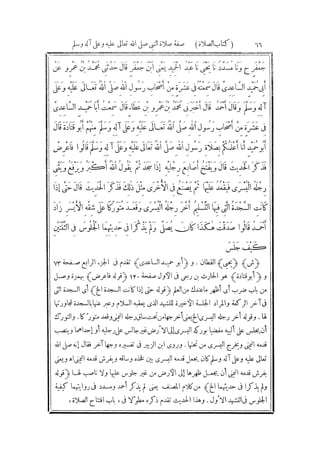 ٦٦ (كتاب الصلاة) صفة صلاة النبى صلى الله تعالى عليه وعلى آله وسلم
جَعْفَرٍ ح وَنَا مُسَدَّدٌ نَا يَحْيَى نَا عَبْدُ الْحَمِيدِ يَعْنِى ابْنَ جَعْفَرٍ قَالَ حَدَّثَنِى مُحَمَّدُ بْنُ عَمْرٍو عَنْ
أَبِى حُمَيْدٍ السَّاعِدِىِّ قَالَ سَمِعْتُهُ فِى عَشَرَةٍ مِنْ أَصْحَابِ رَسُولِ اللهِ صَلَّى اللهُ تَعَالَى عَلَيْهِ وَعَلَى
آلِهِ وَسَلَّمَ وَقَالَ أَحْمَدُ قَالَ أَخْبَرَنِى مُحَمَّدُ بْنُ عَمْرِو بْنِ عَطَاءٍ قَالَ سَمِعْتُ أَبَا حُمَيْدٍ السَّاعِدِىَّ
فِى عَشَرَةٍ مِنْ أَصْحَابِ رَسُولِ اللهِ صَلَّى اللهُ تَعَالَى عَلَيْهِ وَعَلَى آلِهِ وَسَلَّمَ مِنْهُمْ أَبُو قَتَادَةَ قَالَ
أَبُو حُمَيْدٍ أَنَا أَعْلَمُكُمْ بِصَلَاةِ رَسُولِ اللهِ صَلَّى اللهُ تَعَالَى عَلَيْهِ وَعَلَى آلِهِ وَسَلَّمَ قَالُوا فَاعْرِضْ
فَذَكَرَ الْحَدِيثَ قَالَ وَيَفْتَحُ أَصَابِعَ رِجْلَيْهِ إِذَا سَجَدَ ثُمَّ يَقُولُ اللهُ أَكْبَرُ وَيَرْفَعُ وَيَثْنِى
رِجْلَهُ الْيُسْرَى فَيَقْعُدُ عَلَيْهَا ثُمَّ يَصْنَعُ فِى الْأُخْرَى مِثْلَ ذَلِكَ فَذَكَرَ الْحَدِيثَ قَالَ حَتَّى إِذَا
كَانَتِ السَّجْدَةُ الَّتِى فِيهَا التَّسْلِيمُ أَخَّرَ رِجْلَهُ الْيُسْرَى وَقَعَدَ مُتَوَرِّكًا عَلَى شِقِّهِ الْأَيْسَرِ زَادَ
أَحْمَدُ قَالُوا صَدَقْتَ هَكَذَا كَانَ يُصَلِّى وَلَمْ يَذْكُرَا فِى حَدِيثِهِمَا الْجُلُوسَ فِى الثِّنْتَيْنِ
كَيْفَ جَلَسَ
(ش) (يحيى) القطان . و (أبو حميد الساعدى) تقدم فى الجزء الرابع صفحة ٧٣
و (أبو قتادة) هو الحارث بن ربعى فى الأول صفحة ١٢٠ (قوله فاعرض) بهمزة وصل
من باب ضرب أى أظهر ما عندك من العلم (قوله حتى إذا كانت السجدة الخ) أى السجدة التى
فى آخر الركعة والمراد الجلسة الأخيرة للتشهد الذى يعقبه السلام وعبر عنها بالسجدة لمجاورتها
لها . وقوله أخر رجله اليسرى الخ يعنى أخرجها من تحت ساق رجله اليمنى وقعد متوركا . والتورك
أن يجلس على أليتيه مفضيا بوركه اليسرى إلى الأرض غير جالس على رجليه أو إحداهما وينصب
قدمه اليمنى ويخرج اليسرى من تحتها . وروى ابن الزبير فى تفسيره وجها آخر فقال إنه صلى الله
تعالى عليه وعلى آله وسلم كان يجعل قدمه اليسرى بين فخذه وساقه ويفرش قدمه اليمنى اه ويعنى
بفرش قدمه اليمنى أن يجعل ظهرها إلى الأرض من غير جلوس عليها ولا ناصب لها (قوله
ولم يذكرا فى حديثهما الخ) من كلام المصنف يعنى لم يذكر أحمد ومسدد فى روايتهما كيفية
الجلوس فى التشهد الأول . وهذا الحديث تقدم ذكره مطولا فى « باب افتتاح الصلاة »